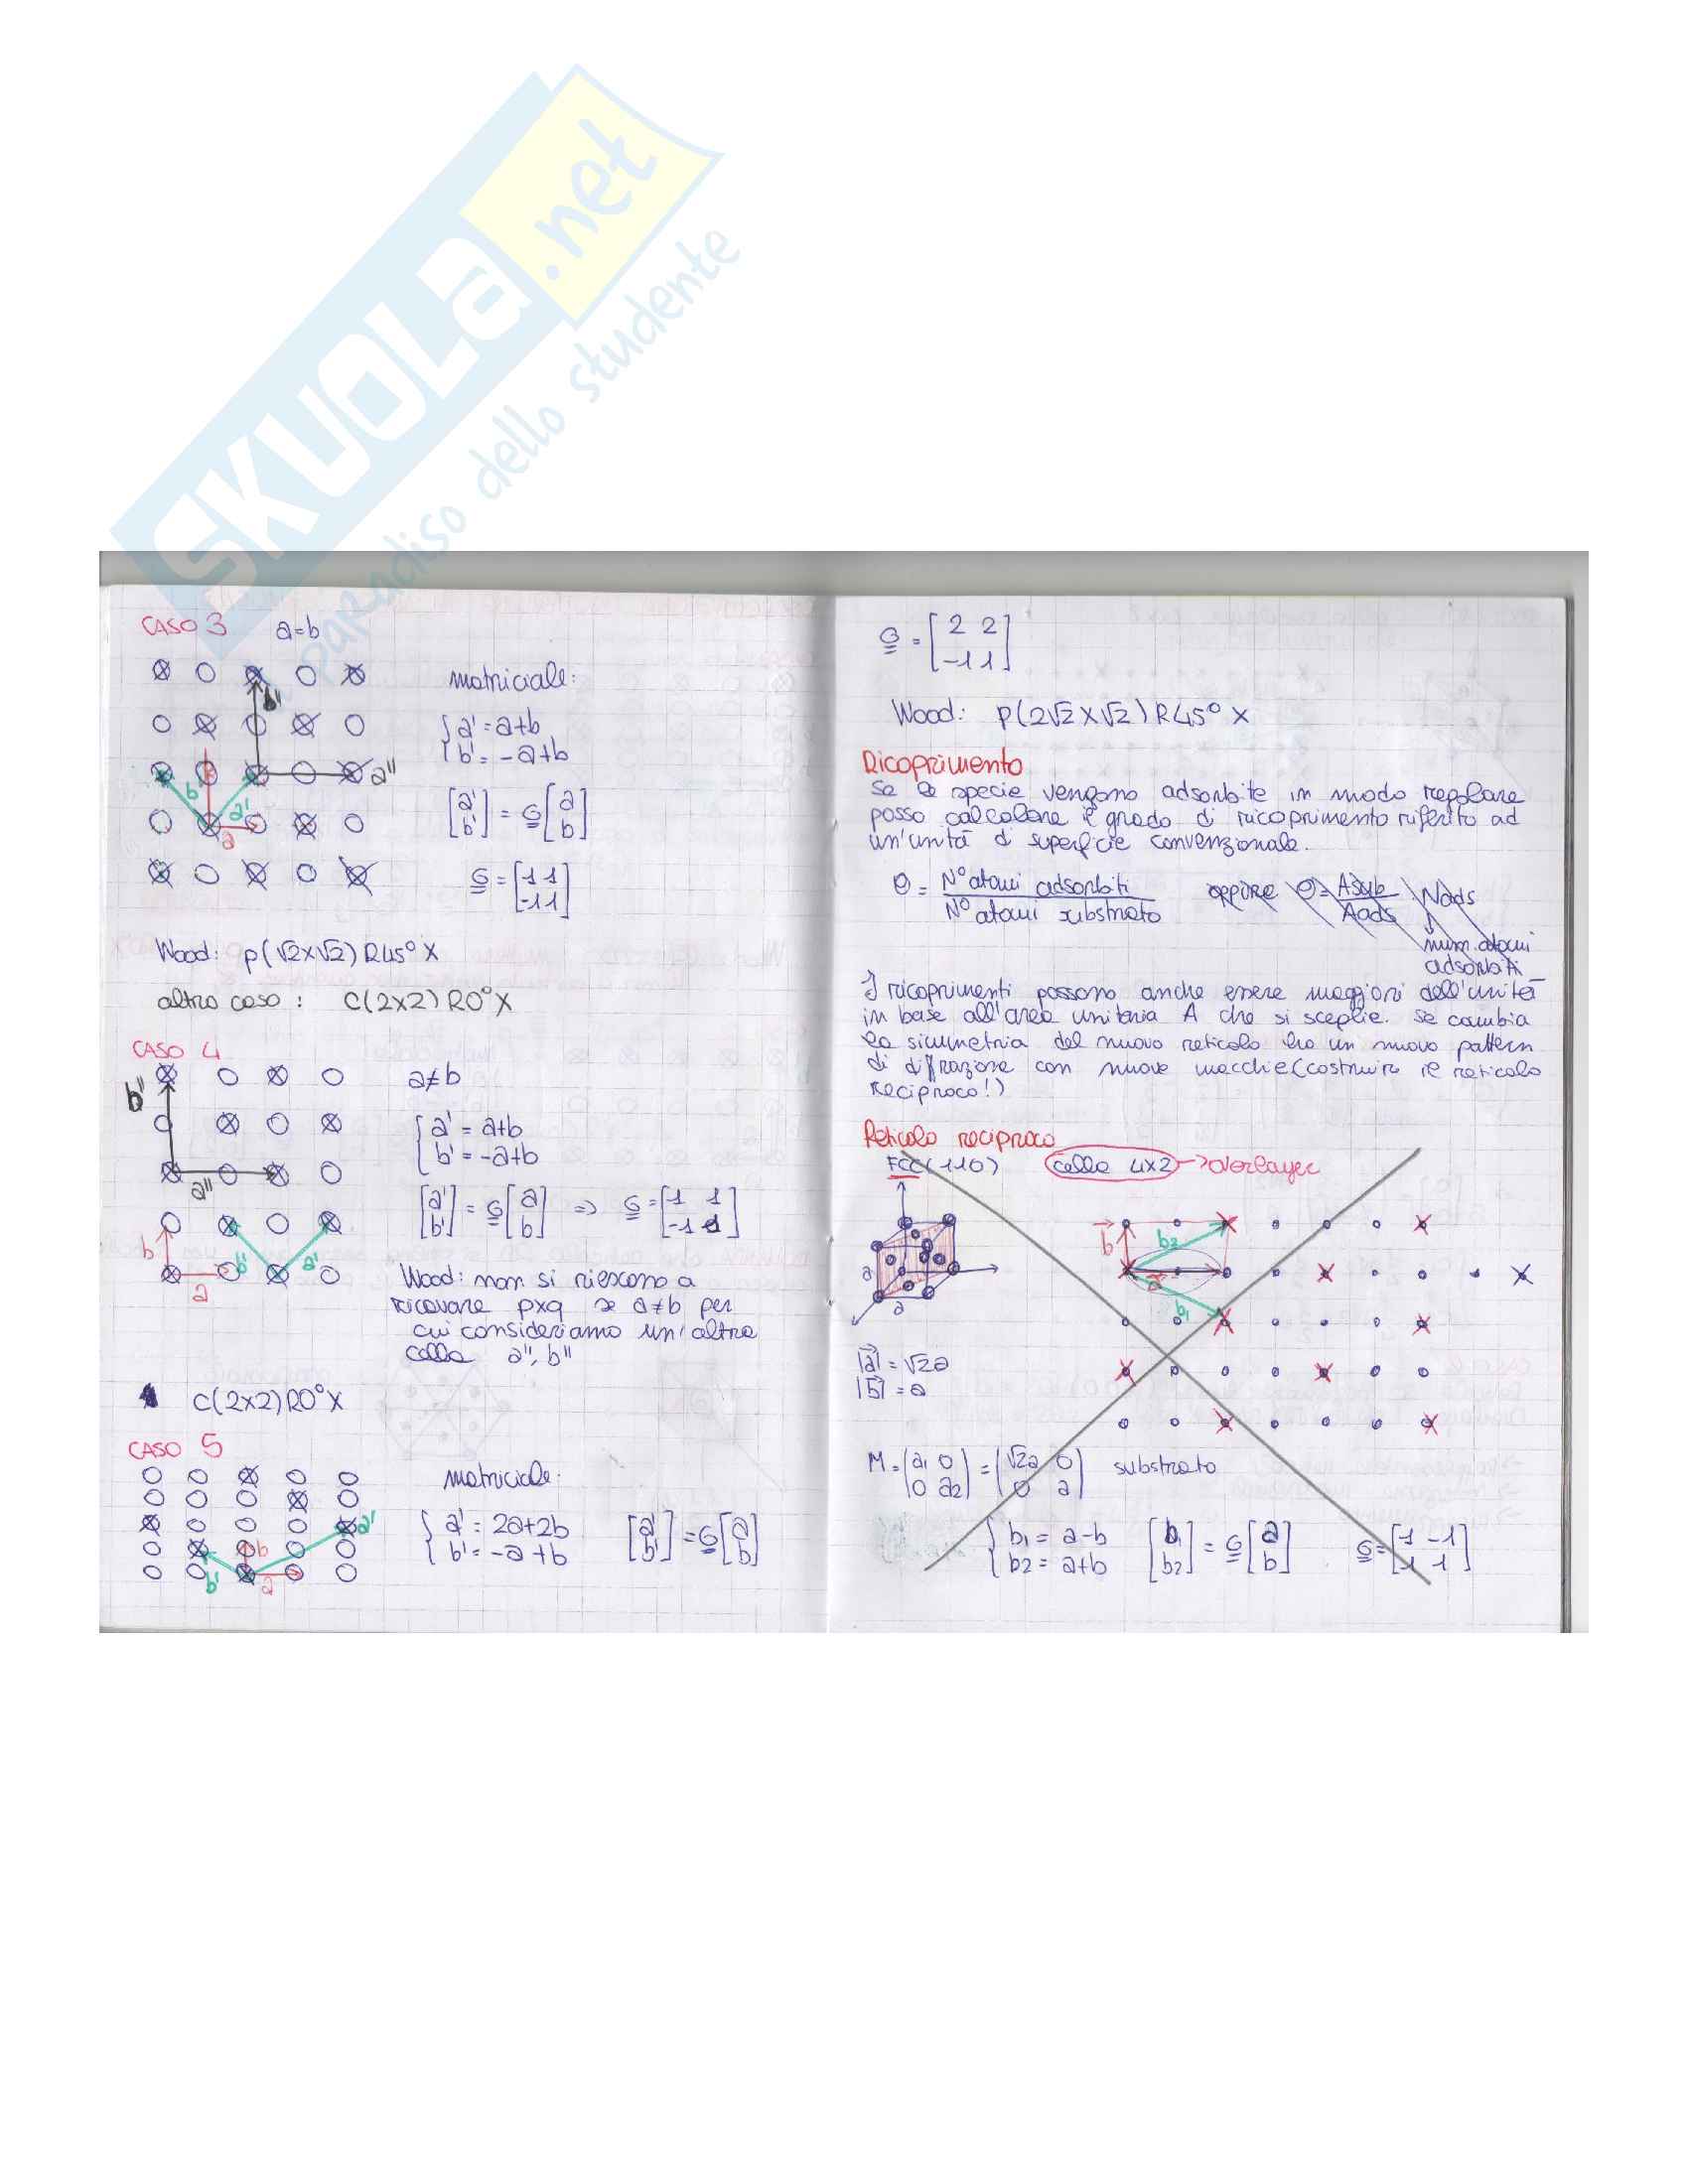 SKUOLA.net
paradiso dello studente
CASO 3 a=b
b''
a''
b'
a'
a
matriciale:
{ a' = a+b
b' = -a+b
[a' b'] = G [a b]
G = [1 1
-1 1]
Wood: p(√2x√2)R45°X
altro caso: C(2x2)R0°X
CASO 4
b''
a''
b
a
b'
a'
a≠b
{ a' = a+b
b' = -a+b
[a' b'] = G [a b] => G = [1 1
-1 1]
Wood: non si riescono a
ricavare pxq se a≠b per
cui consideriamo un'altra
cella a'', b''
C(2x2)R0°X
CASO 5
a'
b
b'
a
matriciale:
{ a' = 2a+2b
b' = -a+b
[a' b'] = G [a b]
G = [2 2
-1 1]
Wood: p(2√2x√2)R45°X
Ricoprimento
Se le specie vengono adsorbite in modo regolare
posso calcolare il grado di ricoprimento riferito ad
un'unità di superficie convenzionale.
θ = N° atomi adsorbiti / N° atomi substrato oppure θ = Asub / Aads · Nads
num. atomi
adsorbiti
I ricoprimenti possono anche essere maggiori dell'unità
in base all'area unitaria A che si sceglie. Se cambia
la simmetria del nuovo reticolo ho un nuovo pattern
di diffrazione con nuove macchie (costruire il reticolo
reciproco!)
Reticolo reciproco
FCC(110) cella 4x2 → overlayer
a
a
b
b2
a
b1
|a| = √2a
|b| = a
M = (a1 0
0 a2) = (√2a 0
0 a) substrato
{ b1 = a-b
b2 = a+b
[b1 b2] = G [a b] G = [1 -1
1 1]